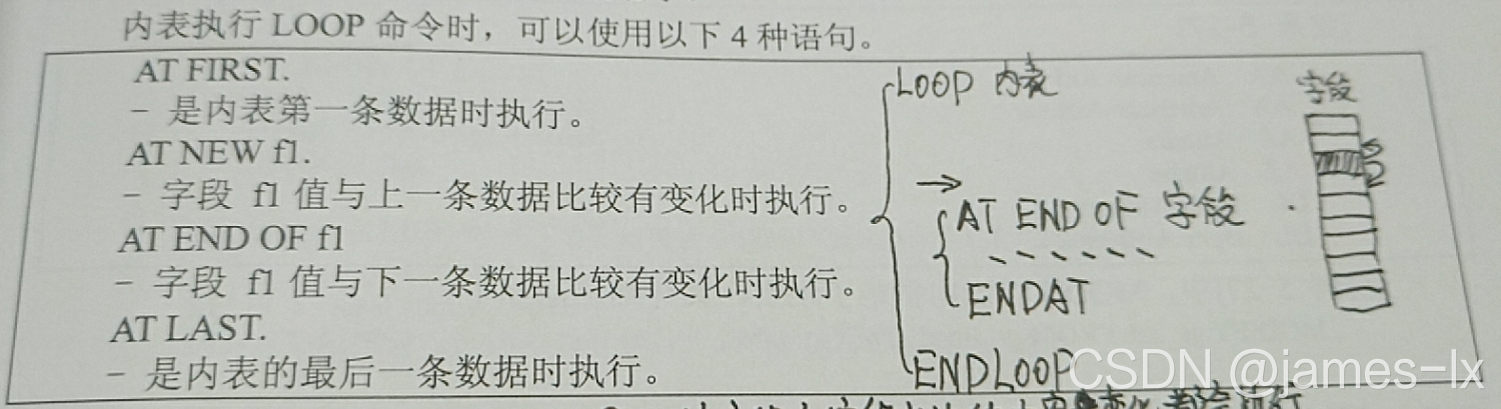 内表执行 LOOP 命令时，可以使用以下 4 种语句。
AT FIRST.
- 是内表第一条数据时执行。
AT NEW f1.
- 字段 f1 值与上一条数据比较有变化时执行。
AT END OF f1
- 字段 f1 值与下一条数据比较有变化时执行。
AT LAST.
- 是内表的最后一条数据时执行。
LOOP 内表
AT END OF 字段
ENDAT
ENDLOOP
字段
CSDN @james-lx